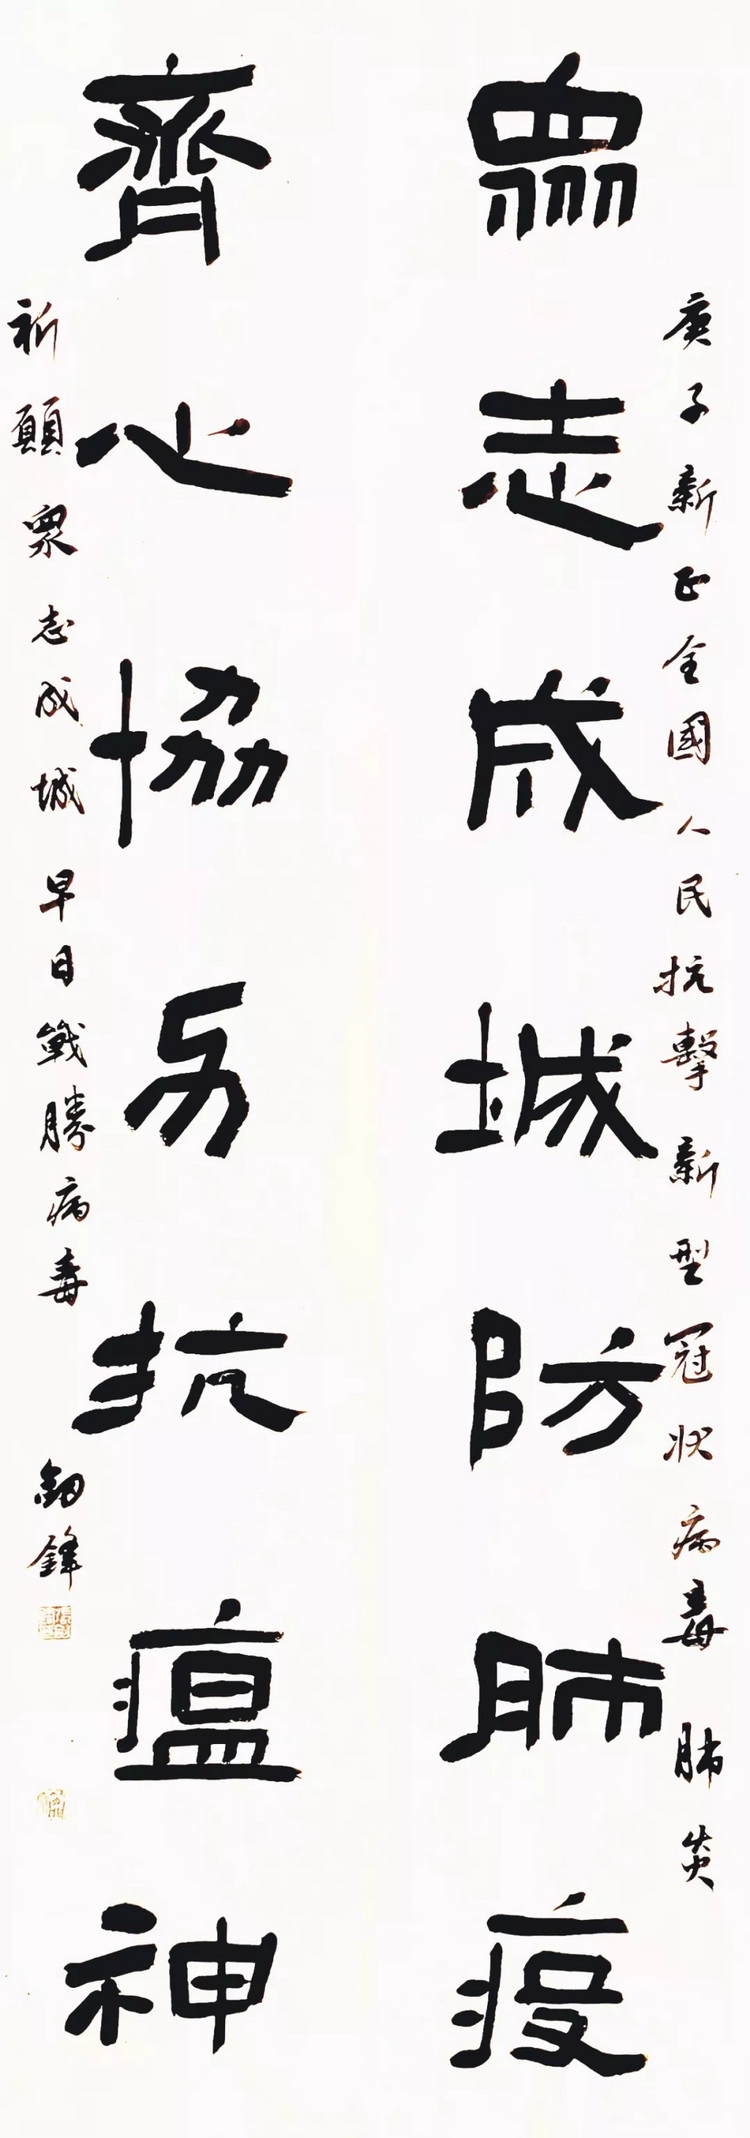 庚子新正全國人民抗擊新型冠状病毒肺炎
眾志成城防肺疫
齊心協力抗瘟神
祈願眾志成城早日戰勝病毒
劍鋒